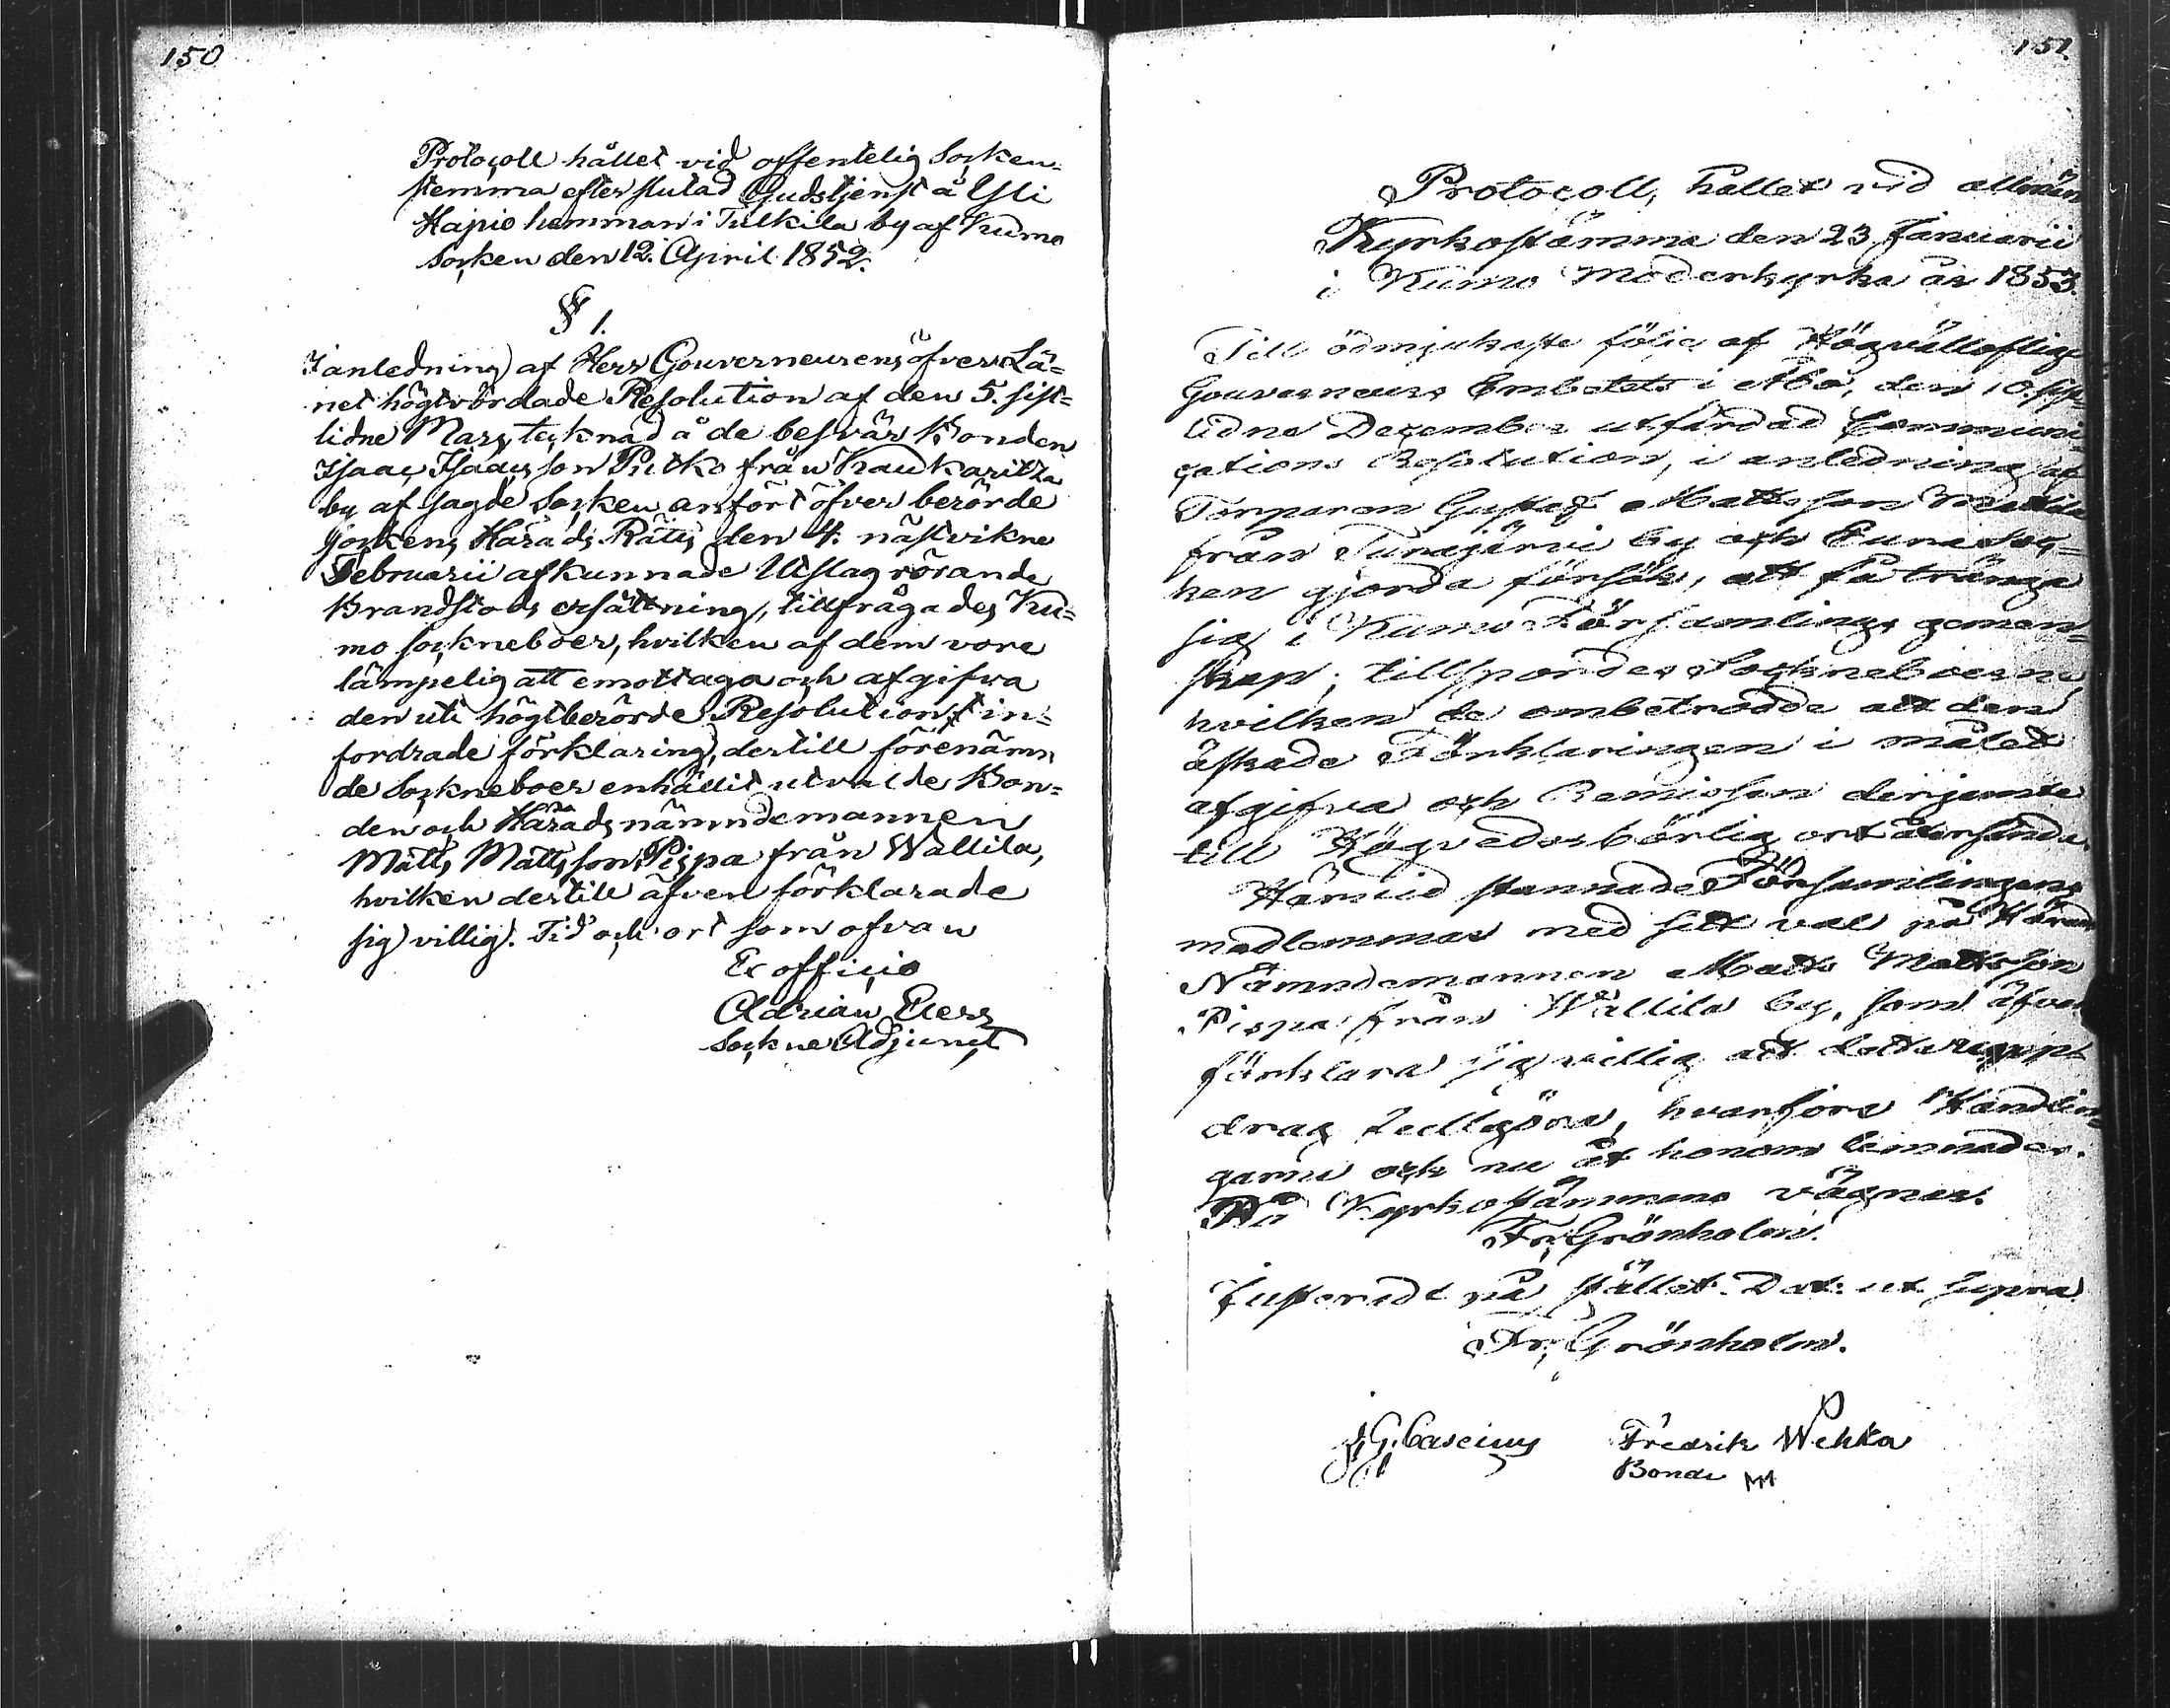 150
Protocoll hållet vid offentelig Socken-
stemma efter slutad Gudstjenst å Yli
Hajpio hemman i Tulkila by af Kumo
Socken den 12. April 1852.
§ 1.
I anledning af Herr Gouverneurens öfver Lä-
net högtvördade Resolution af den 5. sist-
lidne Mars, tecknad å de besvär Bonden
Isaac Isaacsson Pitko från Kaukaritza
by af sagde Socken anfört öfver berörde
Sockens Härads Rätts den 4. näst vikne
Februarii afkunnade Utslag rörande
Brandstods ersättning, tillfrågades Ku-
mo sockneboer, hvilken af dem vore
lämpelig att emottaga och afgifva
den uti högtberörde Resolution in-
fordrade förklaring, dertill förenämn
de Sockneboer enhälligt utvalde Bon-
den och Häradsnämndemannen
Matts Mattsson Pispa från Wallila,
hvilken dertill äfven förklarade
sig villig. Tid och ort som ofvan
Ex officio
Adrian
Sockne Adjunct
151
Protocoll, hållet vid allmän
Kyrkostämma den 23 Januarii
i Kumo Moderkyrka år 1853.
Till ödmjukaste följe af Högvällofliga
Gouverneurs Embetets i Åbo, den 10. sist-
lidne December utfärdad Communi-
cations Resolution, i anledning af
Torparen Gustaf Mattsson
från by och Eura Soc-
ken gjorda försök, att få tränga
sig i Kumo Församlings gemen-
skap; tillspordes Sockneboerne
hvilken de ombetrodde att den
äskade Förklaringen i målet
afgifva och Remissen derjemte
till Högvederbörlig ort återsända.
Härvid stannade Församlingens
medlemmar med sitt val på Härads
Nämndemannen Matts Mattsson
Pispa från Wallila by, som äfven
förklara sig villig att detta upp-
drag fullgöra, hvarföre Handlin-
garne och nu åt honom lemnades.
På Kyrkostämmans vägnar.
Fr. Grönholm.
Justeradt på stället. Dat. ut supra
Fr. Grönholm.
J. G. Cascius Fredrik Wehka
Bonde